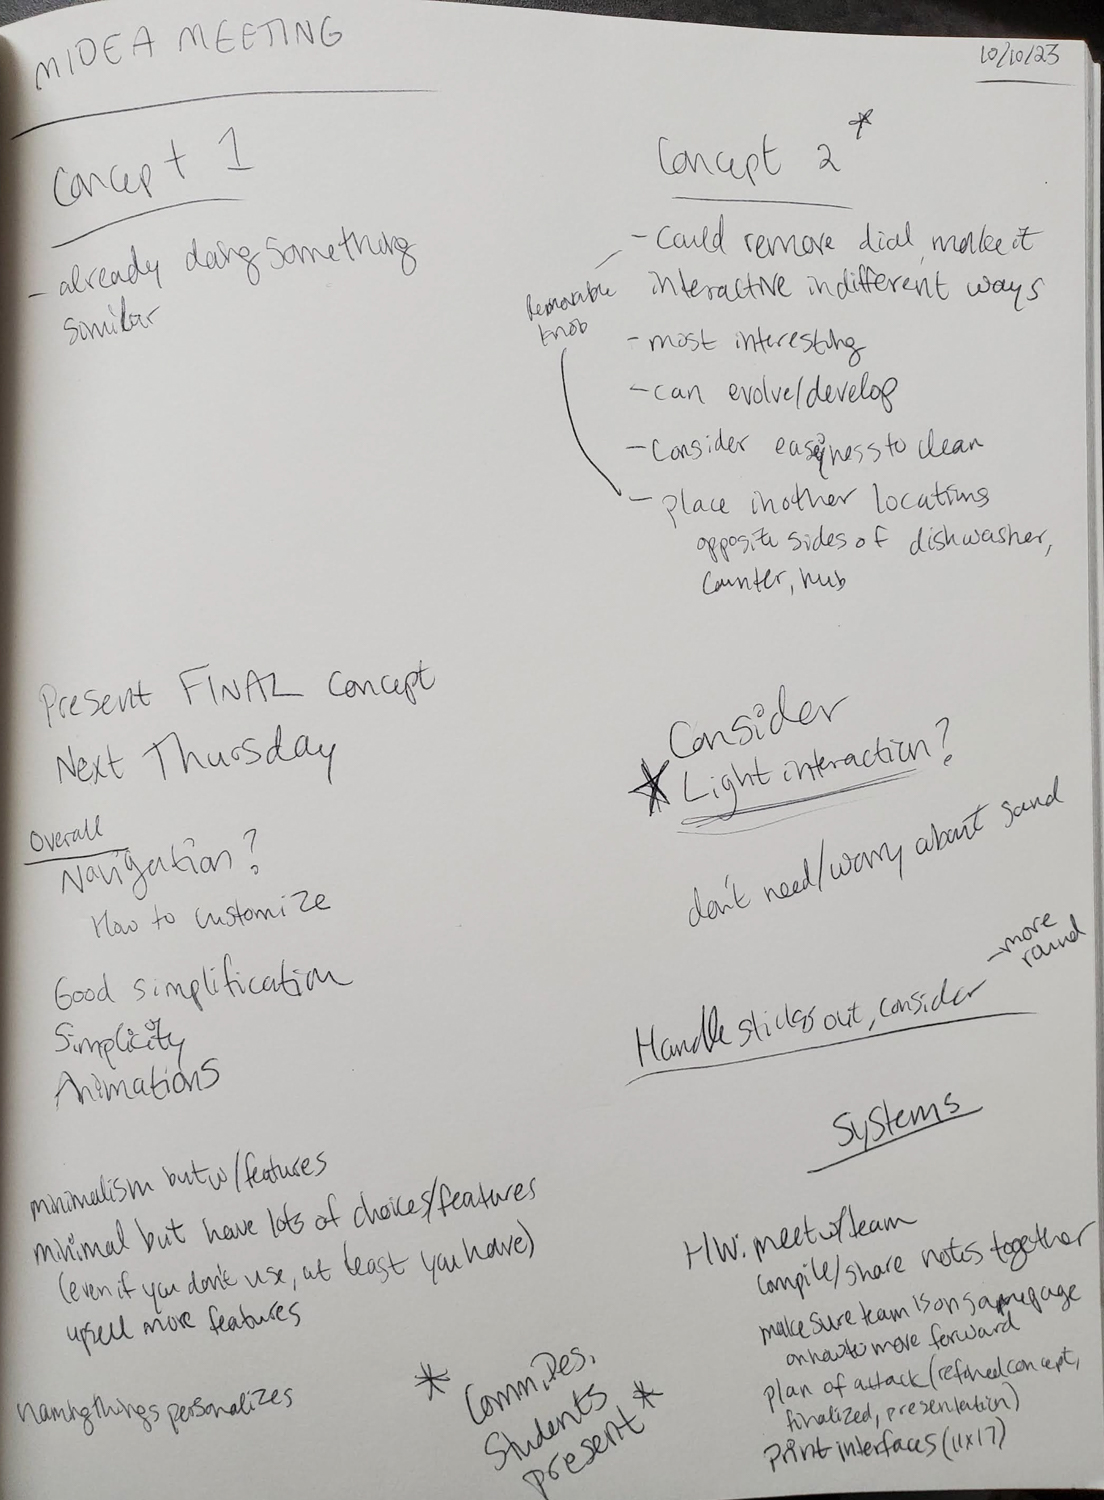 MIDEA MEETING
10/10/23
Concept 1
- already doing something
similar
Concept 2 *
- Could remove dial, make it
interactive in different ways
Removable
knob
- most interesting
- can evolve/develop
- Consider easiness to clean
- place in other locations
opposite sides of dishwasher,
counter, hub
Present FINAL concept
Next Thursday
Overall
Navigation?
How to customize
Good simplification
Simplicity
Animations
minimalism but w/features
minimal but have lots of choices/features
(even if you don't use, at least you have)
upsell more features
naming things personalizes
Consider
* Light interaction?
don't need/worry about sand
Handle sticks out, consider
- more
round
Systems
HW: meet w/team
compile/share notes together
make sure team is on same page
on how to move forward
plan of attack (refined concept,
finalized, presentation)
print interfaces (11x17)
*
Students
present *